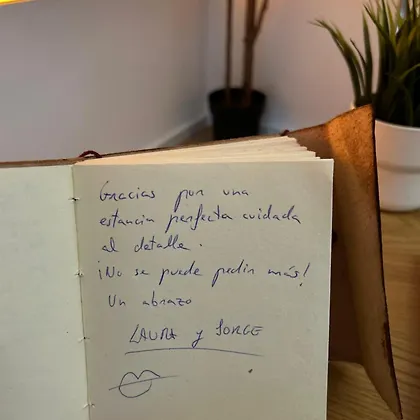 Gracias por una
estancia perfecta cuidada
al detalle.
¡No se puede pedir más!
Un abrazo
LAURA y JORGE